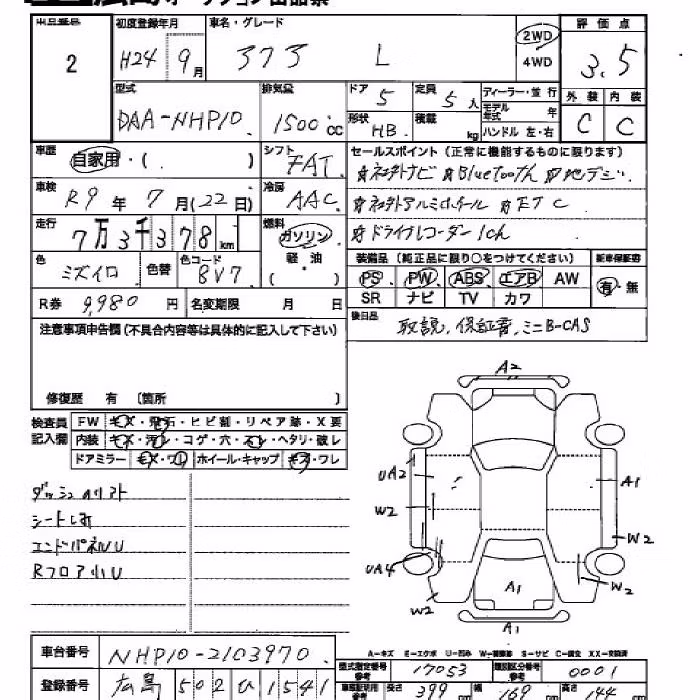 オークション出品票
2
初度登録年月
H24 9月
車名・グレード
アクア L
2WD
4WD
評価点
3.5
外装 内装
C C
型式
DAA-NHP10
排気量
1500cc
ドア 5
定員 5人
形状 HB.
積載 kg
ディーラー・並行
モデル年式 年
ハンドル 左・右
車歴
自家用・( )
シフト
FAT
セールスポイント (正常に機能するものに限ります)
☆ネオトナビ ☆Bluetooth ☆地デジ
☆ネオトアルミホイール ☆ETC
☆ドライブレコーダー1ch
車検
R9年 7月(22日)
冷房
AAC
走行
7万3千378km
燃料
ガソリン
軽油
( )
色
ミズイロ
色替
色コード
8V7
装備品 (純正品に限り○をつけてください)
PS PW ABS エアB AW
SR ナビ TV カワ
新車保証書
有・無
R券 9,980円
名変期限 月 日
後日品
取説, 保証書, ミニB-CAS
注意事項申告欄 (不具合内容等は具体的に記入して下さい)
修復歴 有 〔箇所 〕
検査員記入欄
FW キズ・飛石・ヒビ割・リペア跡・X要
内装 キズ・汚レ・コゲ・穴・スレ・ヘタリ・破レ
ドアミラー キズ・ワレ ホイール・キャップ キズ・ワレ
シートしみ
エンドパネルU
Rフロア小U
A2
UA2
A1
W2
W2
UA4
W2
W2
A1
A1
A-キズ E-エクボ U-凹み W-補修跡 S-サビ C-腐食 XX-交換済
車台番号
NHP10-2103970
型式指定番号 17053
類別区分番号 0001
登録番号
広島 502 ひ 1541
長さ 399 cm
幅 169 cm
高さ 144 cm